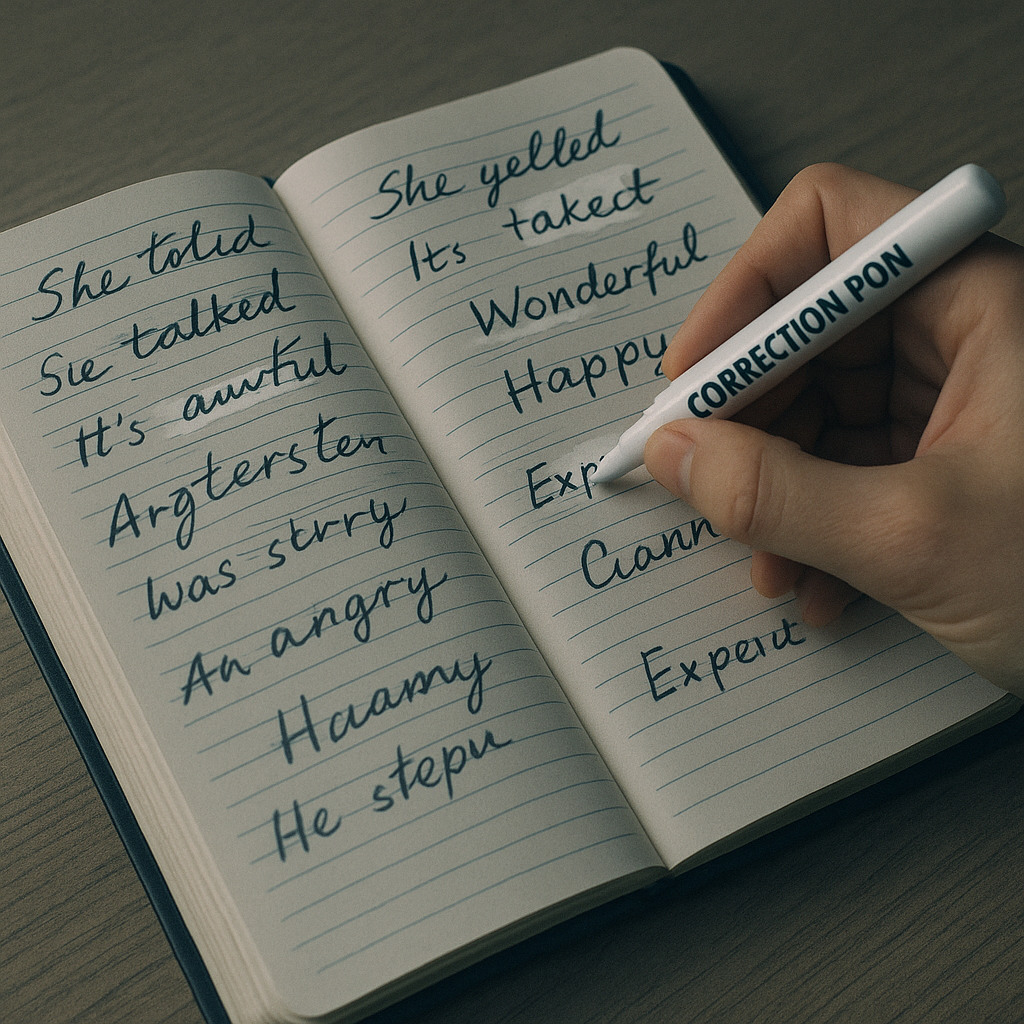 She tolld
Sie talked
It's auwful
Argtersten
was strry
An angry
Haamy
He stepu
She yelled
Its takect
Wonderful
Happy
Exp
Ciann
Expeict
CORRECTION PON